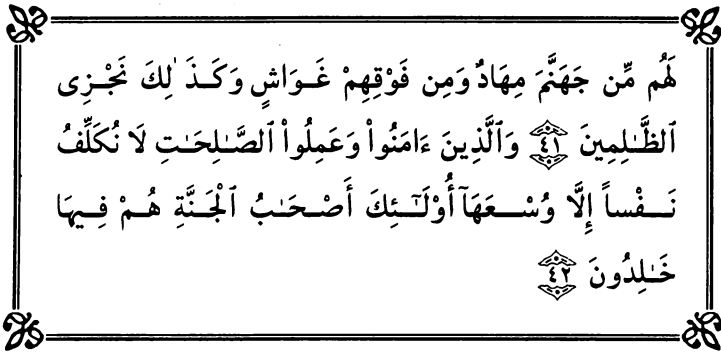 لَهُم مِّن جَهَنَّمَ مِهَادٌ وَمِن فَوْقِهِمْ غَـوَاشٍ وَكَـذَ ٰلِكَ نَجْـزِى
ٱلظَّـٰلِمِينَ ﴿٤١﴾ وَٱلَّذِينَ ءَامَنُوا۟ وَعَمِلُوا۟ ٱلصَّـٰلِحَـٰتِ لَا نُكَلِّفُ
نَـفْسـاً إِلَّا وُسْـعَهَـآ أُوْلَـٰٓئِكَ أَصْـحَـٰبُ ٱلْجَـنَّةِ هُـمْ فِـيهَا
خَـٰلِدُونَ ﴿٤٢﴾